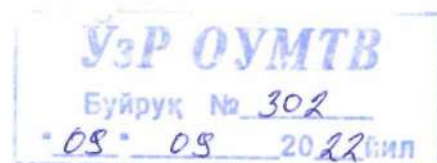 ЎзР ОУМТВ
Буйруқ № 302
"09" 09 2022 йил